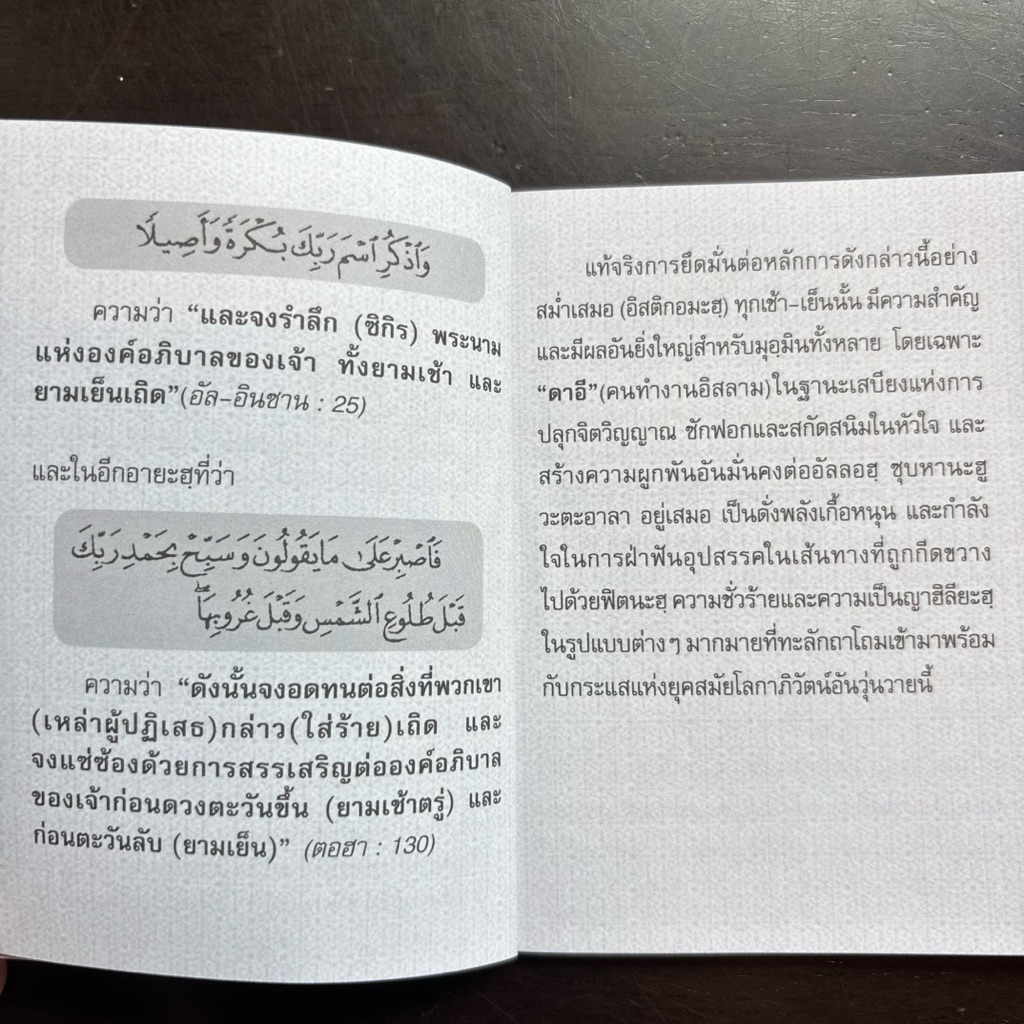 وَٱذۡكُرِ ٱسۡمَ رَبِّكَ بُكۡرَةٗ وَأَصِيلٗا
ความว่า “และจงรำลึก (ซิกิร) พระนาม
แห่งองค์อภิบาลของเจ้า ทั้งยามเช้า และ
ยามเย็นเถิด”(อัล-อินซาน : 25)
และในอีกอายะฮฺที่ว่า
فَٱصۡبِرۡ عَلَىٰ مَا يَقُولُونَ وَسَبِّحۡ بِحَمۡدِ رَبِّكَ
قَبۡلَ طُلُوعِ ٱلشَّمۡسِ وَقَبۡلَ غُرُوبِهَاۖ
ความว่า “ดังนั้นจงอดทนต่อสิ่งที่พวกเขา
(เหล่าผู้ปฏิเสธ)กล่าว(ใส่ร้าย)เถิด และ
จงแซ่ซ้องด้วยการสรรเสริญต่อองค์อภิบาล
ของเจ้าก่อนดวงตะวันขึ้น (ยามเช้าตรู่) และ
ก่อนตะวันลับ (ยามเย็น)” (ตอฮา : 130)
แท้จริงการยึดมั่นต่อหลักการดังกล่าวนี้อย่าง
สม่ำเสมอ (อิสติกอมะฮฺ) ทุกเช้า-เย็นนั้น มีความสำคัญ
และมีผลอันยิ่งใหญ่สำหรับมุอฺมินทั้งหลาย โดยเฉพาะ
“ดาอี”(คนทำงานอิสลาม)ในฐานะเสบียงแห่งการ
ปลุกจิตวิญญาณ ซักฟอกและสกัดสนิมในหัวใจ และ
สร้างความผูกพันอันมั่นคงต่ออัลลอฮฺ ซุบหานะฮู
วะตะอาลา อยู่เสมอ เป็นดั่งพลังเกื้อหนุน และกำลัง
ใจในการฝ่าฟันอุปสรรคในเส้นทางที่ถูกกีดขวาง
ไปด้วยฟิตนะฮฺ ความชั่วร้ายและความเป็นญาฮิลียะฮฺ
ในรูปแบบต่างๆ มากมายที่ทะลักถาโถมเข้ามาพร้อม
กับกระแสแห่งยุคสมัยโลกาภิวัตน์อันวุ่นวายนี้